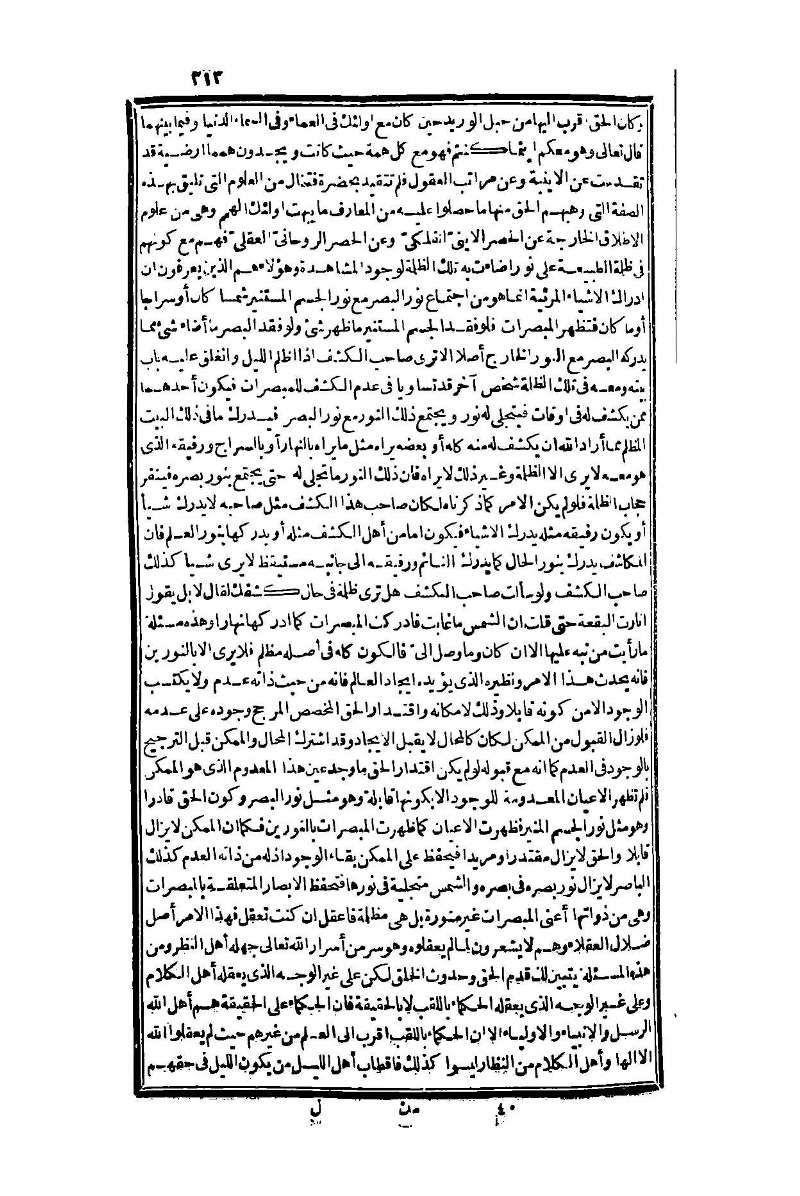 ٣١٣
وكان الحق أقرب اليها من حبل الوريد حين كان مع أولئك فى العماء وفى السماء الدنيا وفيما بينهما
قال تعالى وهو معكم أينما كنتم فهو مع كل همة حيث كانت ويجدون همما أرضية قد
تقدست عن الاينية وعن مراتب العقول فلم تتقيد بحضرة فتنال من العلوم التى تليق بهذه
الصفة التى وهبهم الحق منها ما حصلوا عليه من المعارف ما يبهت أولئك الهمم وهى من علوم
الاطلاق الخارجة عن الحصر الاينى الفلكى وعن الحصر الروحانى العقلى فهم مع كونهم
فى ظلمة الطبيعة على نور أضاءت به تلك الظلمة لوجود المشاهدة وهؤلاء هم الذين يعرفون ان
ادراك الاشياء المرئية انما هو من اجتماع نور البصر مع نور الجسم المستنير شمسا كان أو سراجا
أو ما كان فتظهر المبصرات فلو فقد الجسم المستنير ما ظهر شئ ولو فقد البصر ما أضاء شئ مما
يدركه البصر مع النور الخارج أصلا الا ترى صاحب الكشف اذا أظلم الليل وانغلق عليه باب
بيته ومعه فى تلك الظلمة شخص آخر قد تساويا فى عدم الكشف للمبصرات فيكون أحدهما
ممن يكشف له فى أوقات فيتجلى له نور ويجتمع ذلك النور مع نور البصر فيدرك ما فى ذلك البيت
المظلم مما أراد الله ان يكشف له منه كله أو بعضه يراه مثل ما يراه بالنهار أو بالسراج ورفيقه الذى
هو معه لا يرى الا الظلمة وغير ذلك لا يراه فان ذلك النور ما تجلى له حتى يجتمع بنور بصره فينفر
حجاب الظلمة فلو لم يكن الامر كما ذكرناه لكان صاحب هذا الكشف مثل صاحبه لا يدرك شيأ
أو يكون رفيقه مثله يدرك الاشياء فيكون اما من أهل الكشف مثله أو يدركها بنور العلم فان
المكاشف يدرك بنور الحال كما يدرك النائم ورفيقه الى جانبه مستيقظ لا يرى شيأ كذلك
صاحب الكشف ولو سألت صاحب الكشف هل ترى ظلمة فى حال كشفك لقال لا بل يقول
أنارت البقعة حتى قلت ان الشمس ما غابت فأدركت المبصرات كما أدركها نهارا وهذه مسئلة
ما رأيت من نبه عليها الا ان كان وما وصل الىّ فالكون كله فى أصله مظلم فلا يرى الا بالنورين
فانه يحدث هذا الامر ونظيره الذى يؤيده ايجاد العالم فانه من حيث ذاته عدم ولا يكتسب
الوجود الا من كونه قابلا وذلك لامكانه واقتدار الحق المخصص المرجح وجوده على عدمه
فلو زال القبول من الممكن لكان كالمحال لا يقبل الايجاد وقد اشترك المحال والممكن قبل الترجيح
بالوجود فى العدم كما انه مع قبوله لو لم يكن اقتدار الحق ما وجد عين هذا المعدوم الذى هو الممكن
فلم تظهر الاعيان المعدومة للوجود الا بكونها قابلة وهو مثل نور البصر وكون الحق قادرا
وهو مثل نور الجسم المنير فظهرت الاعيان كما ظهرت المبصرات بالنورين فكما ان الممكن لا يزال
قابلا والحق لا يزال مقتدرا ومريدا فيحفظ على الممكن بقاء الوجود اذ له من ذاته العدم كذلك
الباصر لا يزال نور بصره فى بصره والشمس متجلية فى نورها فتحفظ الابصار المتعلقة بالمبصرات
وهى من ذواتها أعنى المبصرات غير منورة بل هى مظلمة فاعقل ان كنت تعقل فهذا الامر أصل
ضلال العقلاء وهم لا يشعرون لما لم يعقلوه وهو سر من أسرار الله تعالى جهله أهل النظر ومن
هذه المسئلة يتبين لك قدم الحق وحدوث الخلق لكن على غير الوجه الذى يعقله أهل الكلام
وعلى غير الوجه الذى يعقله الحكماء باللقب لا بالحقيقة فان الحكماء على الحقيقة هم أهل الله
الرسل والانبياء والاولياء الا ان الحكماء باللقب أقرب الى العلم من غيرهم حيث لم يعقلوا الله
الا الها وأهل الكلام من النظار ليسوا كذلك فأقطاب أهل الليل من يكون الليل فى حقهم
٤٠ من ل